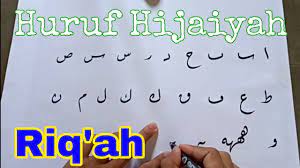 Huruf Hijaiyah
ا ب ح د ر س س ص
ط ع ف ق ك ك ل م ن
Riq'ah
و ههه